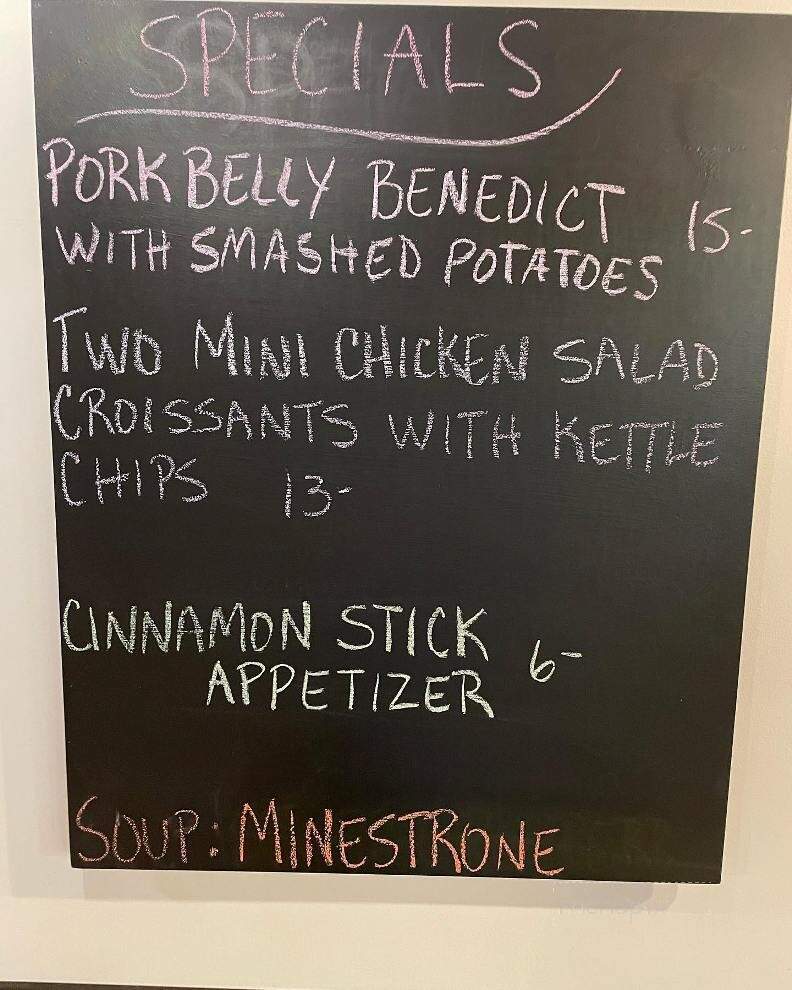 SPECIALS
PORK BELLY BENEDICT 15-
WITH SMASHED POTATOES
TWO MINI CHICKEN SALAD
CROISSANTS WITH KETTLE
CHIPS 13-
CINNAMON STICK 6-
APPETIZER
SOUP: MINESTRONE